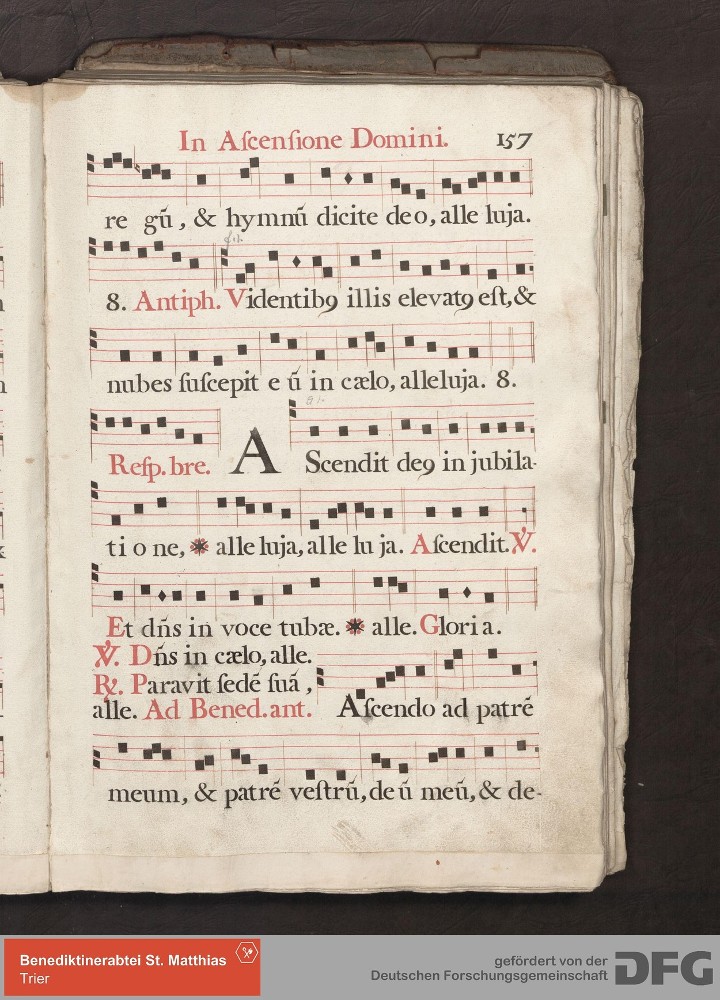 In Aſcenſione Domini. 157
re gū, & hymnū dicite deo, alle luja.
8. Antiph. Videntibꝯ illis elevatꝯ eſt, &
nubes ſuſcepit e ū in cælo, alleluja. 8.
Reſp. bre. A Scendit deꝯ in jubila-
ti o ne, ✵ alle luja, alle lu ja. Aſcendit. ℣.
Et dn̄s in voce tubæ. ✵ alle. Gloria.
℣. Dn̄s in cælo, alle.
℟. Paravit ſedē ſuā,
alle. Ad Bened. ant. Aſcendo ad patrē
meum, & patrē veſtrū, de ū meū, & de-
Benediktinerabtei St. Matthias
Trier
gefördert von der
Deutschen Forschungsgemeinschaft DFG